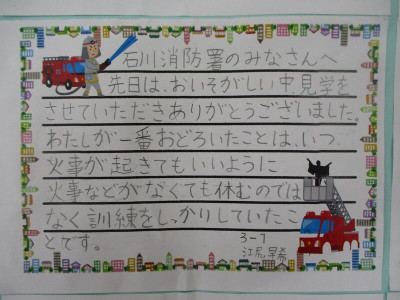 石川消防署のみなさんへ
先日は、おいそがしい中、見学を
させていただきありがとうございました。
わたしが一番おどろいたことは、いつ
火事が起きてもいいように
火事などがなくても休むのでは
なく訓練をしっかりしていたこ
とです。
3-1